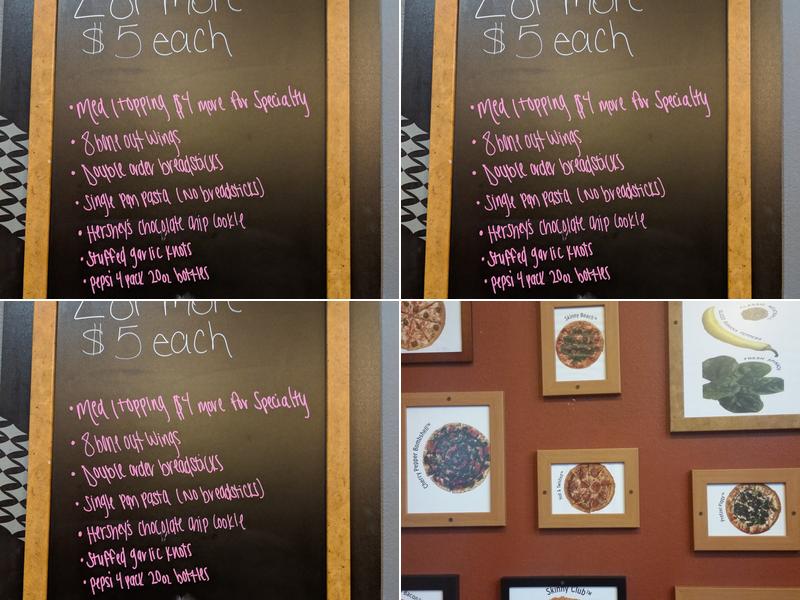 2 or more
$5 each
• Med 1 topping $4 more for Specialty
• 8 bone out wings
• Double order breadsticks
• Single Pan Pasta (no breadsticks)
• Hershey's chocolate chip cookie
• Stuffed garlic knots
• pepsi 4 pack 20oz bottles
2 or more
$5 each
• Med 1 topping $4 more for Specialty
• 8 bone out wings
• Double order breadsticks
• Single Pan Pasta (no breadsticks)
• Hershey's chocolate chip cookie
• Stuffed garlic knots
• pepsi 4 pack 20oz bottles
2 or more
$5 each
• Med 1 topping $4 more for Specialty
• 8 bone out wings
• Double order breadsticks
• Single Pan Pasta (no breadsticks)
• Hershey's chocolate chip cookie
• Stuffed garlic knots
• pepsi 4 pack 20oz bottles
Skinny Beach™
Cherry Pepper Bombshell™
Skinny Club™